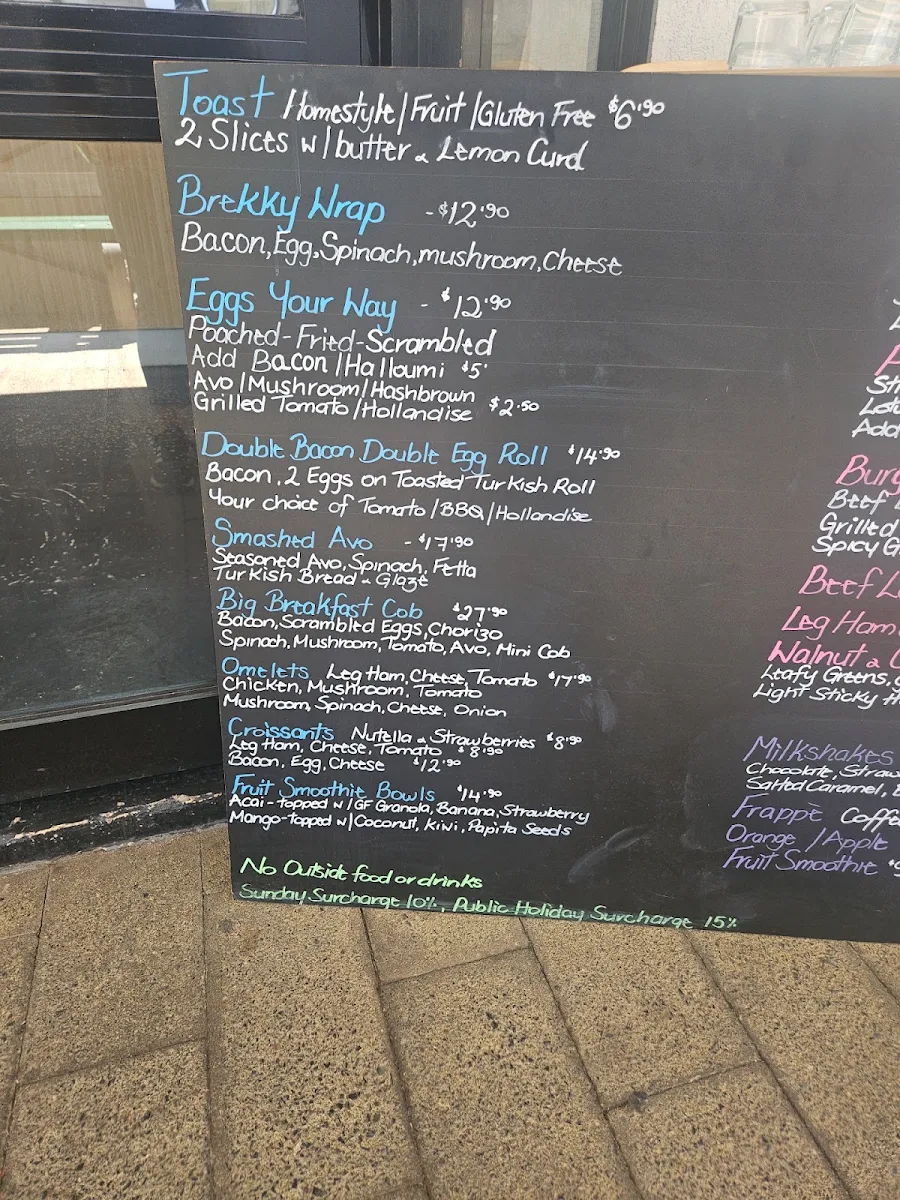 Toast Homestyle/Fruit/Gluten Free $6.90
2 Slices w/butter & Lemon Curd
Brekky Wrap - $12.90
Bacon, Egg, Spinach, mushroom, Cheese
Eggs Your Way - $12.90
Poached-Fried-Scrambled
Add Bacon/Halloumi $5
Avo/Mushroom/Hashbrown
Grilled Tomato/Hollandise $2.50
Double Bacon Double Egg Roll $14.90
Bacon, 2 Eggs on Toasted Turkish Roll
Your choice of Tomato/BBQ/Hollandise
Smashed Avo - $17.90
Seasoned Avo, Spinach, Fetta
Turkish Bread & Glaze
Big Breakfast Cob $27.90
Bacon, Scrambled Eggs, Chorizo
Spinach, Mushroom, Tomato, Avo, Mini Cob
Omelets Leg Ham, Cheese, Tomato $17.90
Chicken, Mushroom, Tomato
Mushroom, Spinach, Cheese, Onion
Croissants Nutella & Strawberries $8.90
Leg Ham, Cheese, Tomato $8.90
Bacon, Egg, Cheese $12.90
Fruit Smoothie Bowls $14.90
Acai-topped w/GF Granola, Banana, Strawberry
Mango-topped w/Coconut, Kiwi, Papita Seeds
No Outside food or drinks
Sunday Surcharge 10%, Public Holiday Surcharge 15%
Add
Beef
Grilled
Spicy
Beef
Leg Ham
Walnut &
Leafy Greens,
Light Sticky
Milkshakes
Chocolate,
Salted Caramel,
Frappè
Orange / Apple
Fruit Smoothie